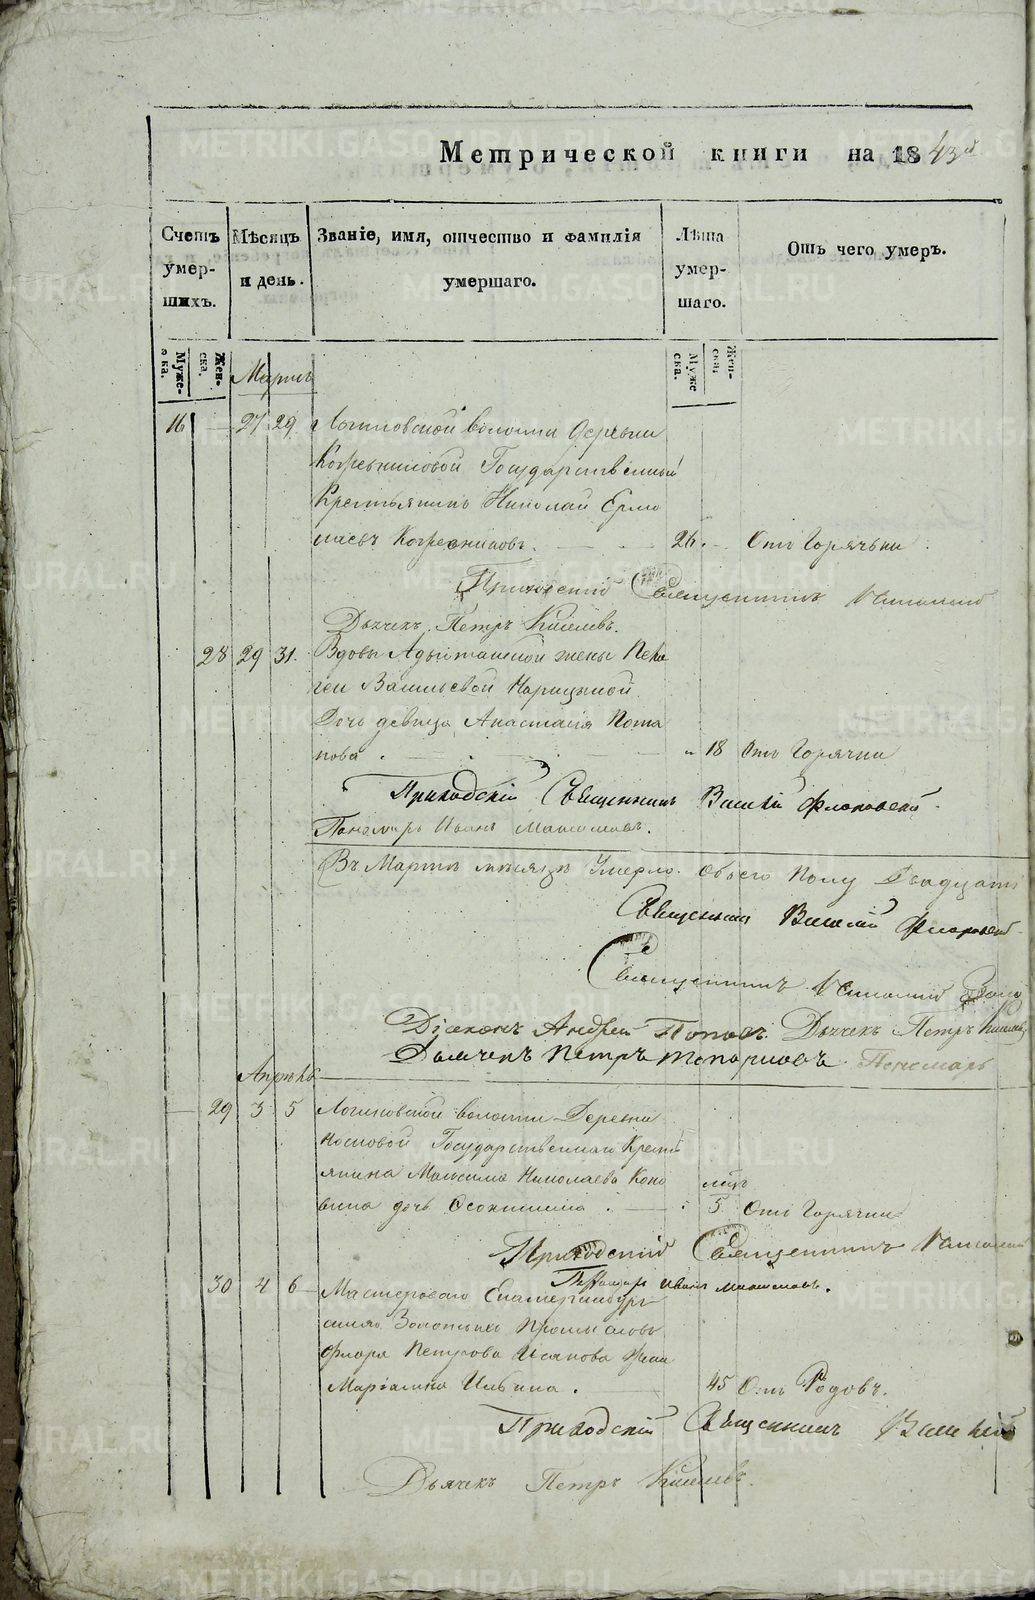 Метрической книги на 1843й
Счетъ умер- шихъ.
Мѣсяцъ и день.
Званіе, имя, отчество и фамилія умершаго.
Лѣта умер- шаго.
Отъ чего умеръ.
Муже- ска.
Жен- ска.
Муже ска.
Жен- ска.
Мартъ
16 — 27 29 Логиновской волости деревни
Государственный
Крестьянинъ Николай Ермо
лаевъ 26. — Отъ Горячьки.
Приходскій Священникъ
Дьячекъ Петръ Киселевъ.
28 29 31. Вдовы жены Пела
геи Васильевой Нарицыной
Дочь девица Анастасія Пота
пова. 18 Отъ Горячки
Приходскій Священникъ Василій Флоровскій.
Пономарь Иванъ Максимовъ.
Въ Мартѣ мѣсяцѣ Умерло Обоего Полу Двадцать
Священникъ Василій Флоровскій
Священникъ
Діаконъ Андрей Поповъ. Дьячекъ Петръ Киселевъ
Дьячекъ Петръ Топорковъ. Пономарь
Апрѣль
— 29 3 5 Логиновской волости Деревни
Носковой Государственнаго Кресть
янина Максима Николаева Коно
вина дочь лѣтъ 5 Отъ Горячки
Приходскій Священникъ
Пономарь Иванъ Максимовъ.
30 4 6 Мастероваго Екатеринбург
скихъ Золотыхъ Промысловъ
Флора Петрова Исакова жена
Маріамна Ильина. 45 Отъ Родовъ.
Приходскій Священникъ Василій
Дьячекъ Петръ Киселевъ.
METRIKI.GASO-URAL.RU